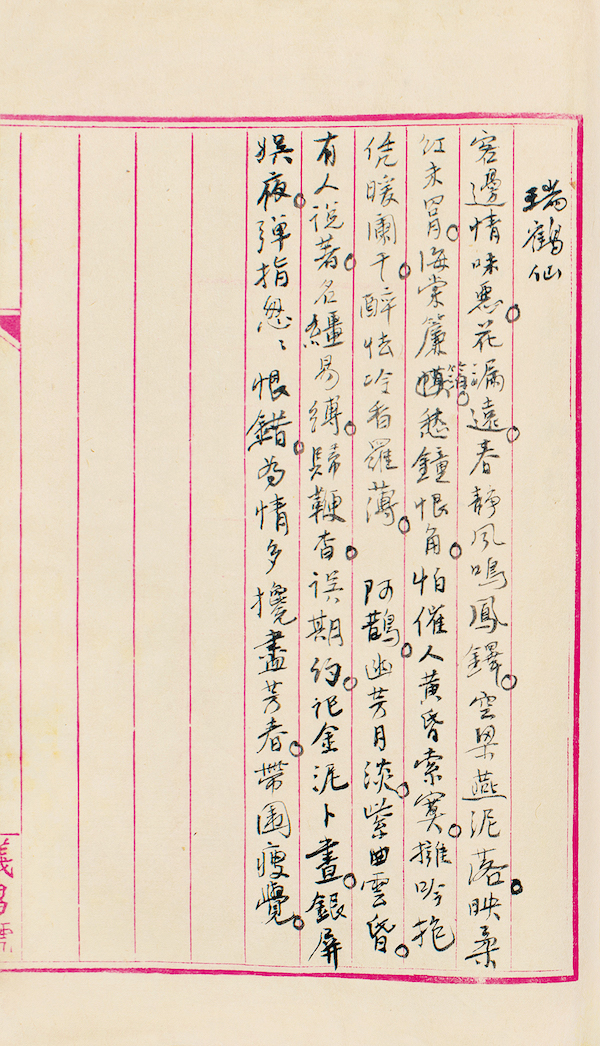 瑞鶴仙
客邊情味惡。花漏遠。春靜風鳴鳳鐸。空梁燕泥落。映柔
紅未罥。海棠簾幙箔。愁鐘恨角。怕催人黄昏索寞。擁吟袍
凭暖闌干。醉怯冷香羅薄。　阿鵲。幽芳月淡。紫曲雲昏。
有人說著。名繮易縛。歸鞭杳。誤期約。記金泥卜晝。銀屏
娛夜。弹指怱〻恨錯。為情多攙盡芳春。帶圍瘦覺。
義昌